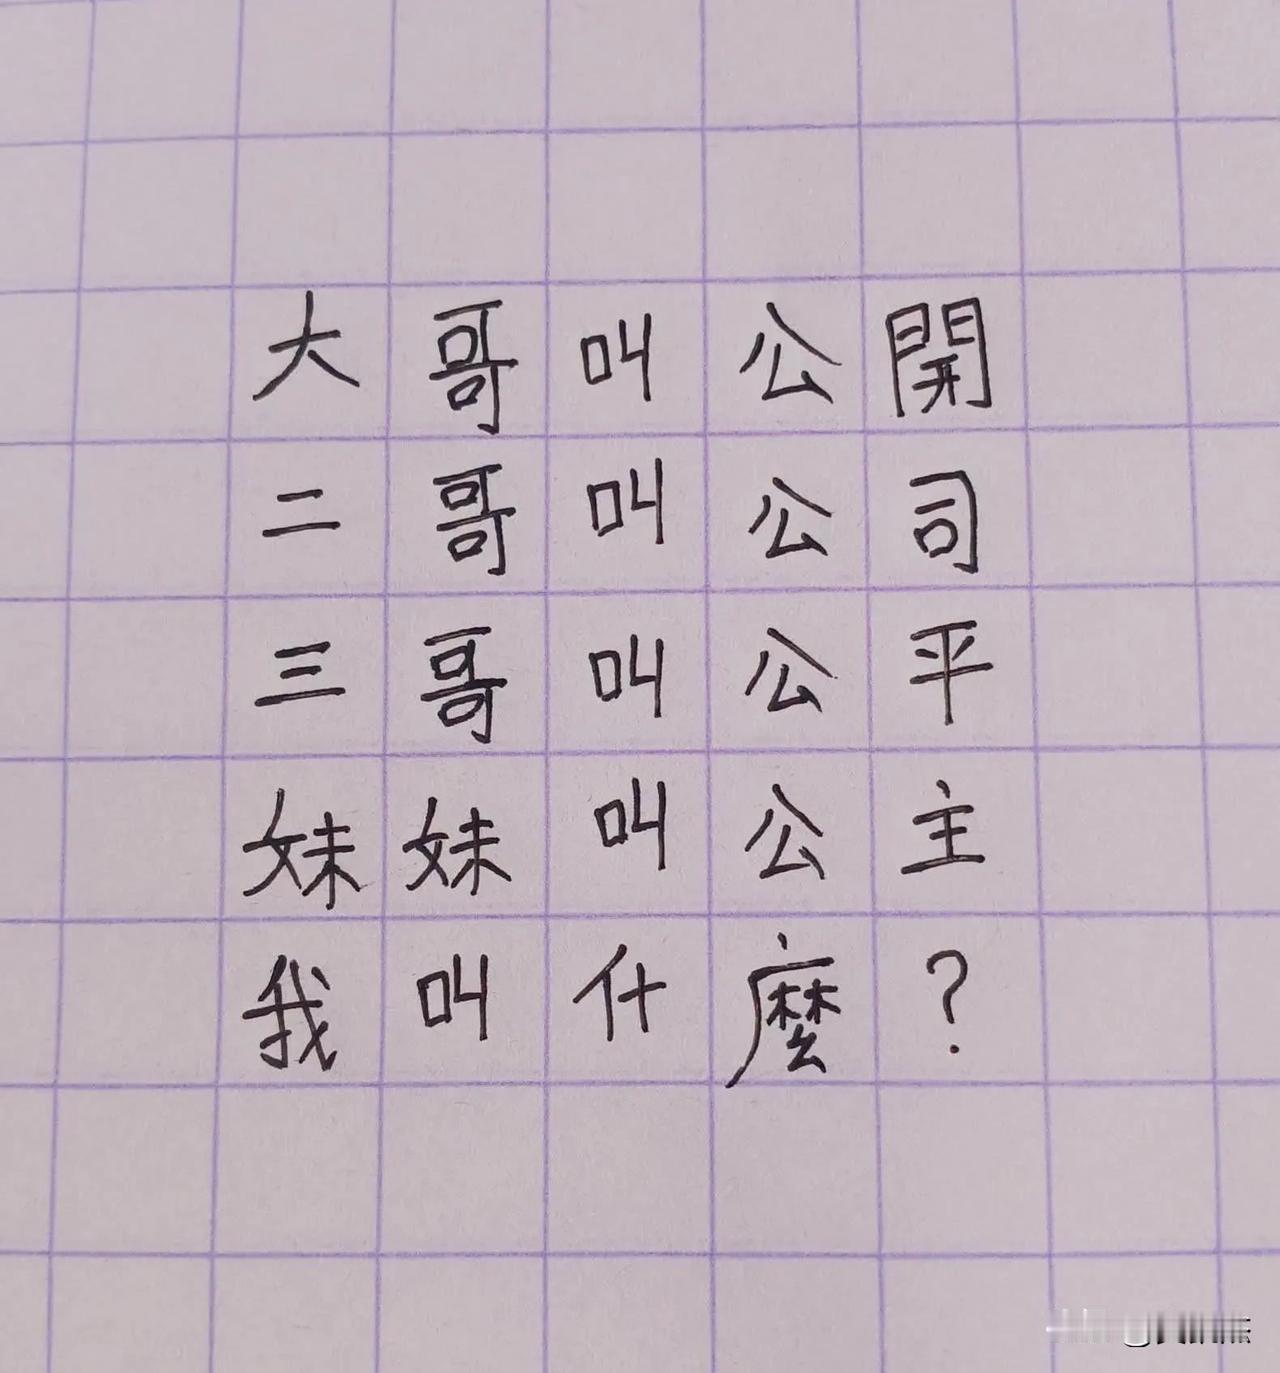 大哥叫公開
二哥叫公司
三哥叫公平
妹妹叫公主
我叫什麼?